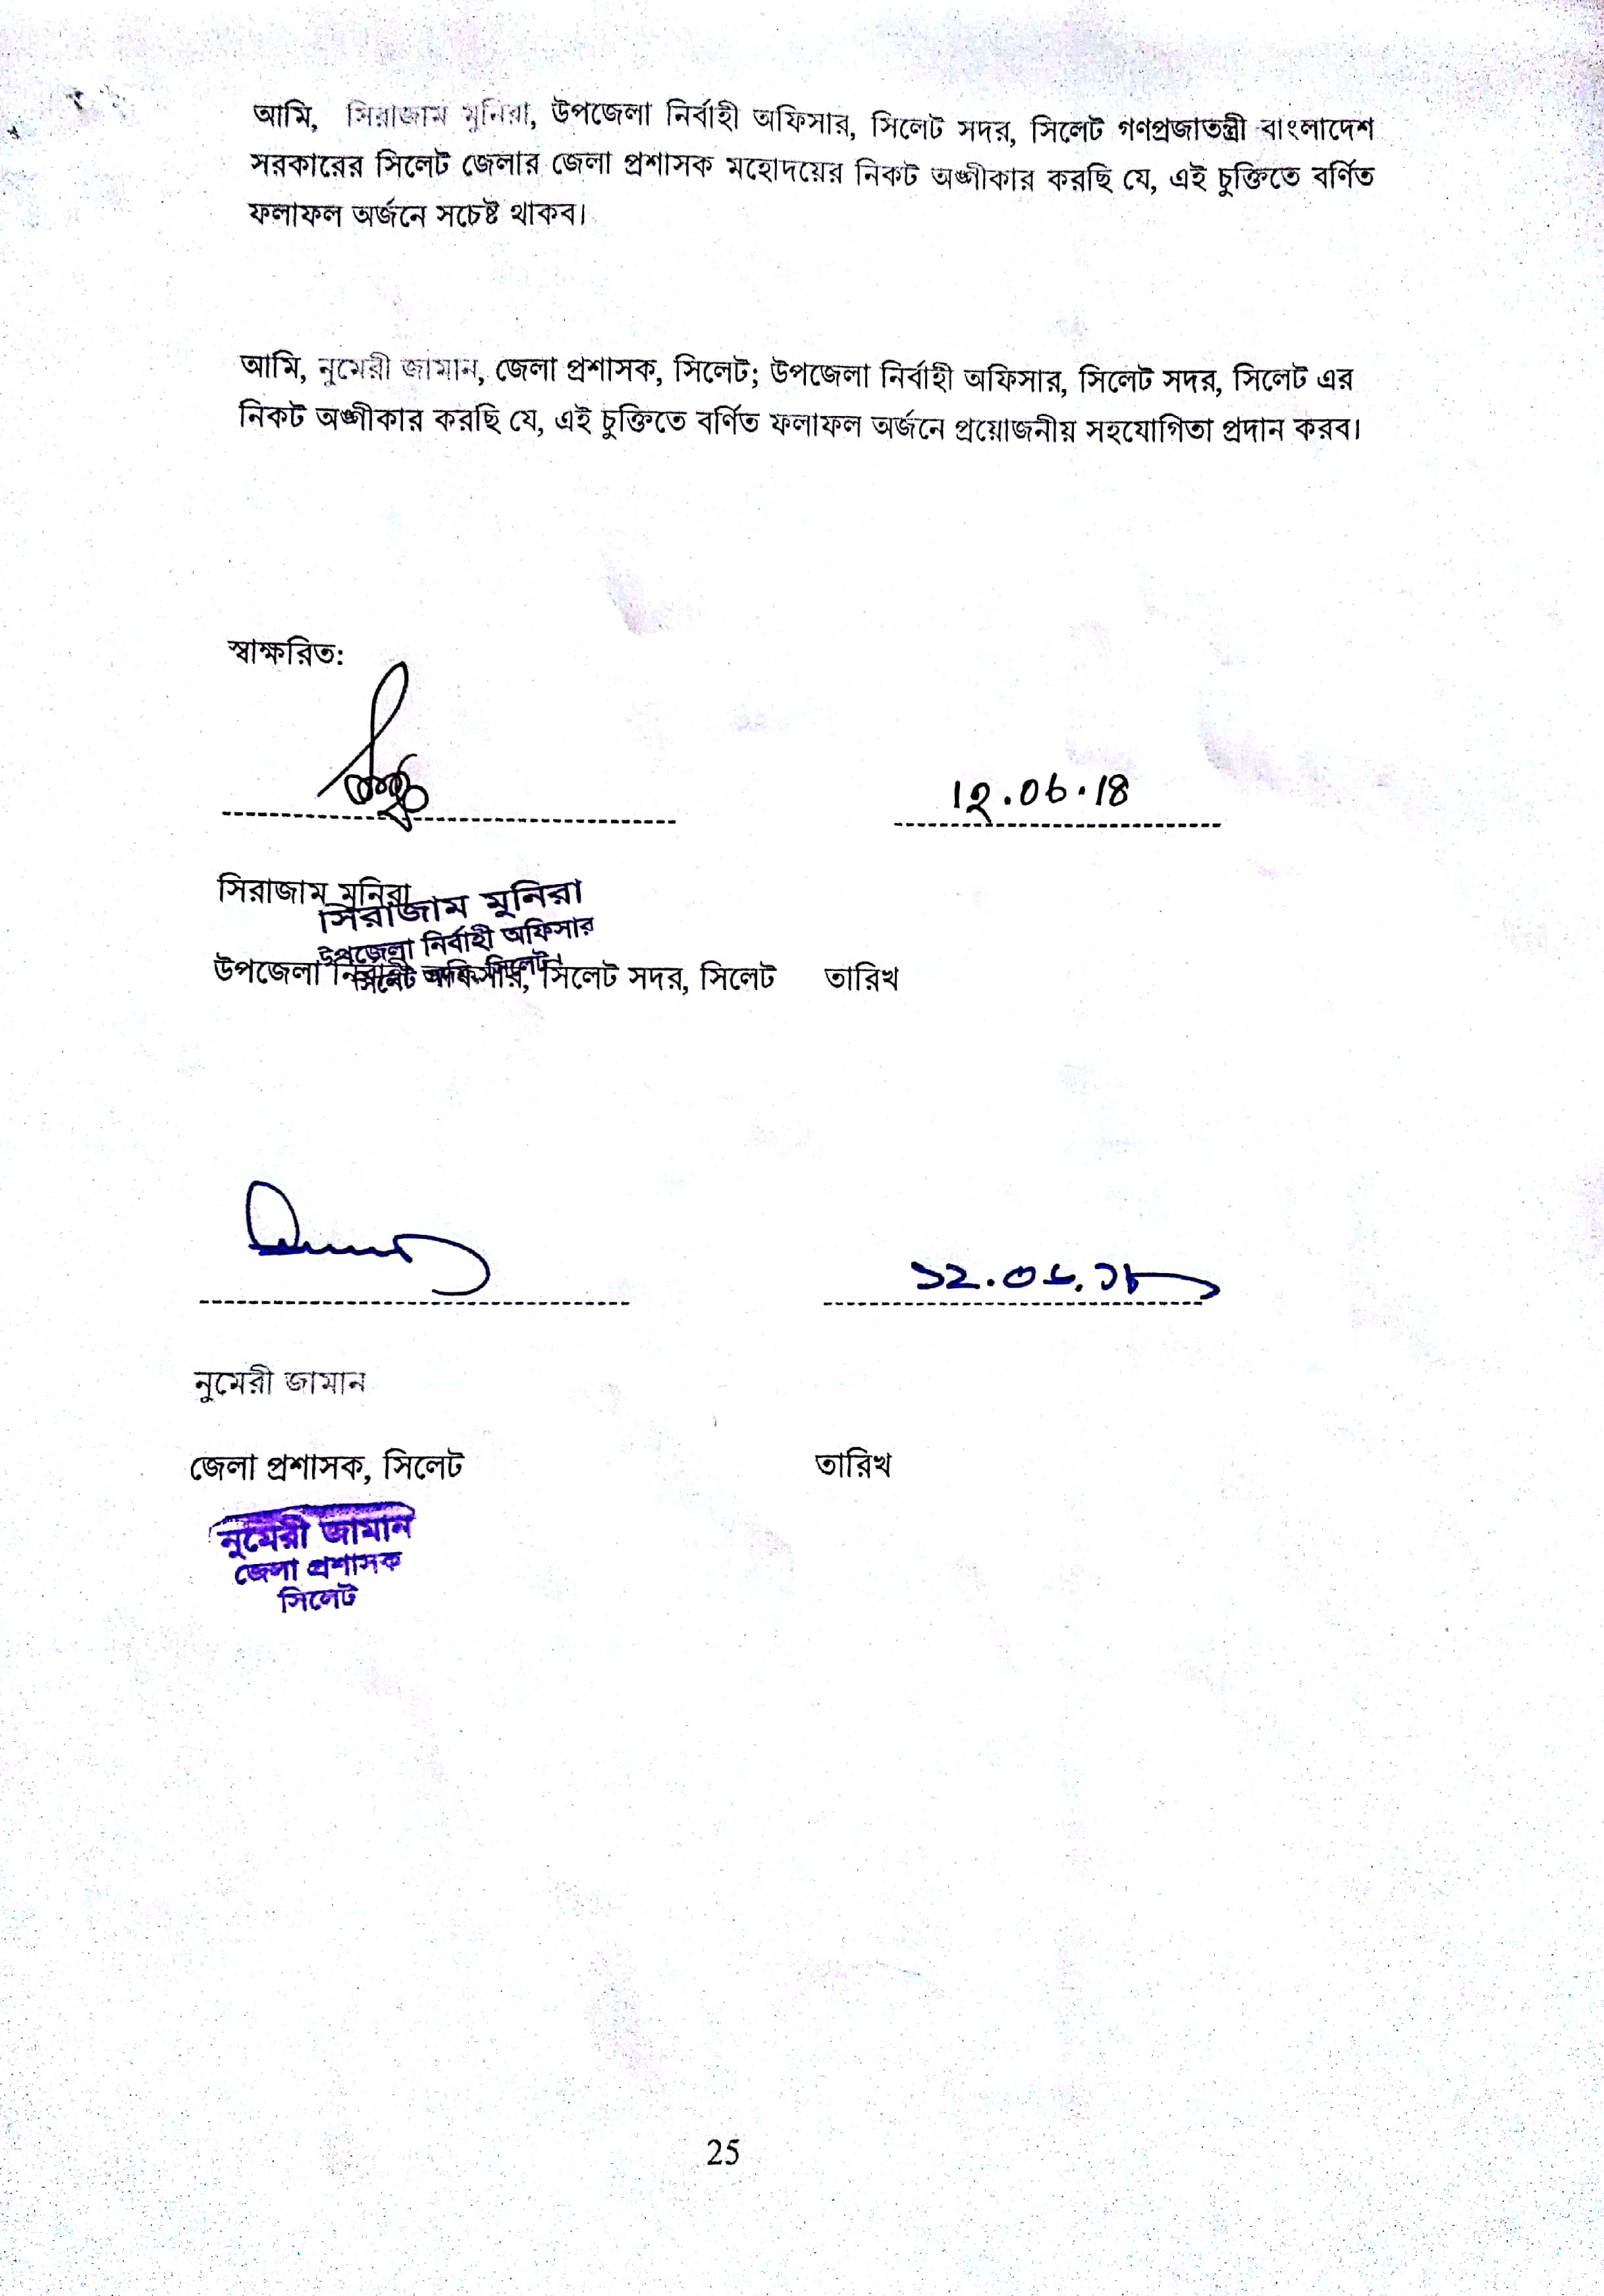 আমি, সিরাজাম মুনিরা, উপজেলা নির্বাহী অফিসার, সিলেট সদর, সিলেট গণপ্রজাতন্ত্রী বাংলাদেশ
সরকারের সিলেট জেলার জেলা প্রশাসক মহোদয়ের নিকট অঙ্গীকার করছি যে, এই চুক্তিতে বর্ণিত
ফলাফল অর্জনে সচেষ্ট থাকব।
আমি, নুমেরী জামান, জেলা প্রশাসক, সিলেট; উপজেলা নির্বাহী অফিসার, সিলেট সদর, সিলেট এর
নিকট অঙ্গীকার করছি যে, এই চুক্তিতে বর্ণিত ফলাফল অর্জনে প্রয়োজনীয় সহযোগিতা প্রদান করব।
স্বাক্ষরিত:
12.06.18
সিরাজাম মুনিরা
সিরাজাম মুনিরা
উপজেলা নির্বাহী অফিসার
সিলেট সদর, সিলেট।
উপজেলা নির্বাহী অফিসার, সিলেট সদর, সিলেট তারিখ
১২.০৬.১৮
নুমেরী জামান
জেলা প্রশাসক, সিলেট তারিখ
নুমেরী জামান
জেলা প্রশাসক
সিলেট
25